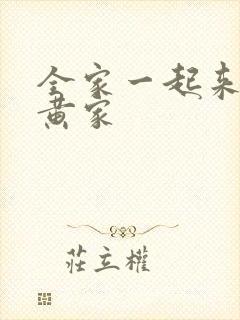 全家一起来
黄家
莊立權